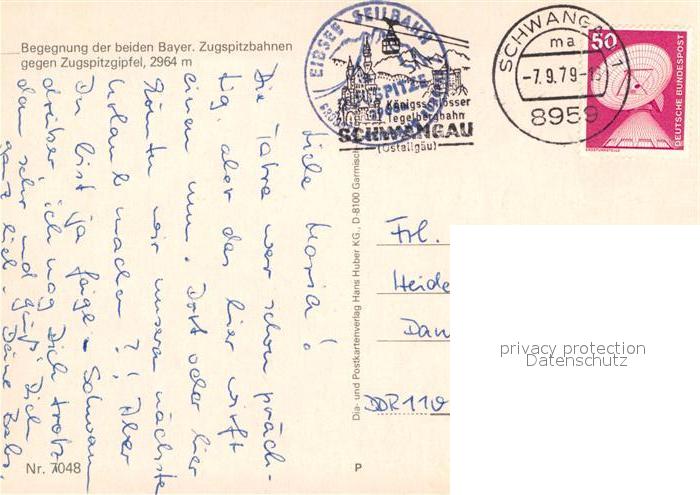 Begegnung der beiden Bayer. Zugspitzbahnen
gegen Zugspitzgipfel, 2964 m
EIBSEE SEILBAHN
SPITZE
Königsschlösser
Tegelbergbahn
SCHWANGAU
(Ostallgäu)
SCHWANGAU 1
ma
-7.9.79-
8959
50
DEUTSCHE BUNDESPOST
Liebe Maria!
Die Tatra war schon präch-
tig, aber das hier wirft
einen um. Dort oder hier
könnten wir unseren nächsten
Urlaub machen?! Aber
Du bist ja feige - Schwamm
drüber, ich mag Dich trotz-
dem sehr und grüß' Dich
ganz lieb. Deine Babs.
Dia- und Postkartenverlag Hans Huber KG., D-8100 Garmisch
Frl.
Heide
Dan
DDR 110
privacy protection
Datenschutz
Nr. 7048
P